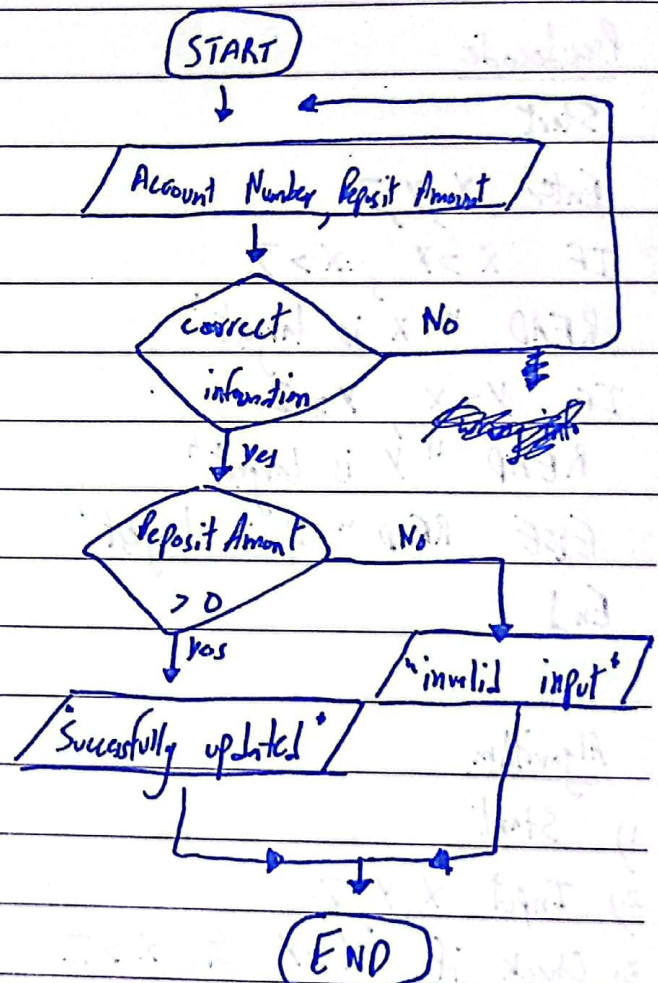 START
Account Number, Deposit Amount
correct
information
No
yes
Deposit Amont
> 0
No
yes
"invalid input"
"Successfully updated"
END